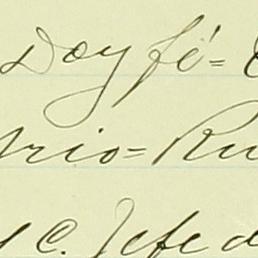 Doy fé=
rio=Ru
C. Jefe d